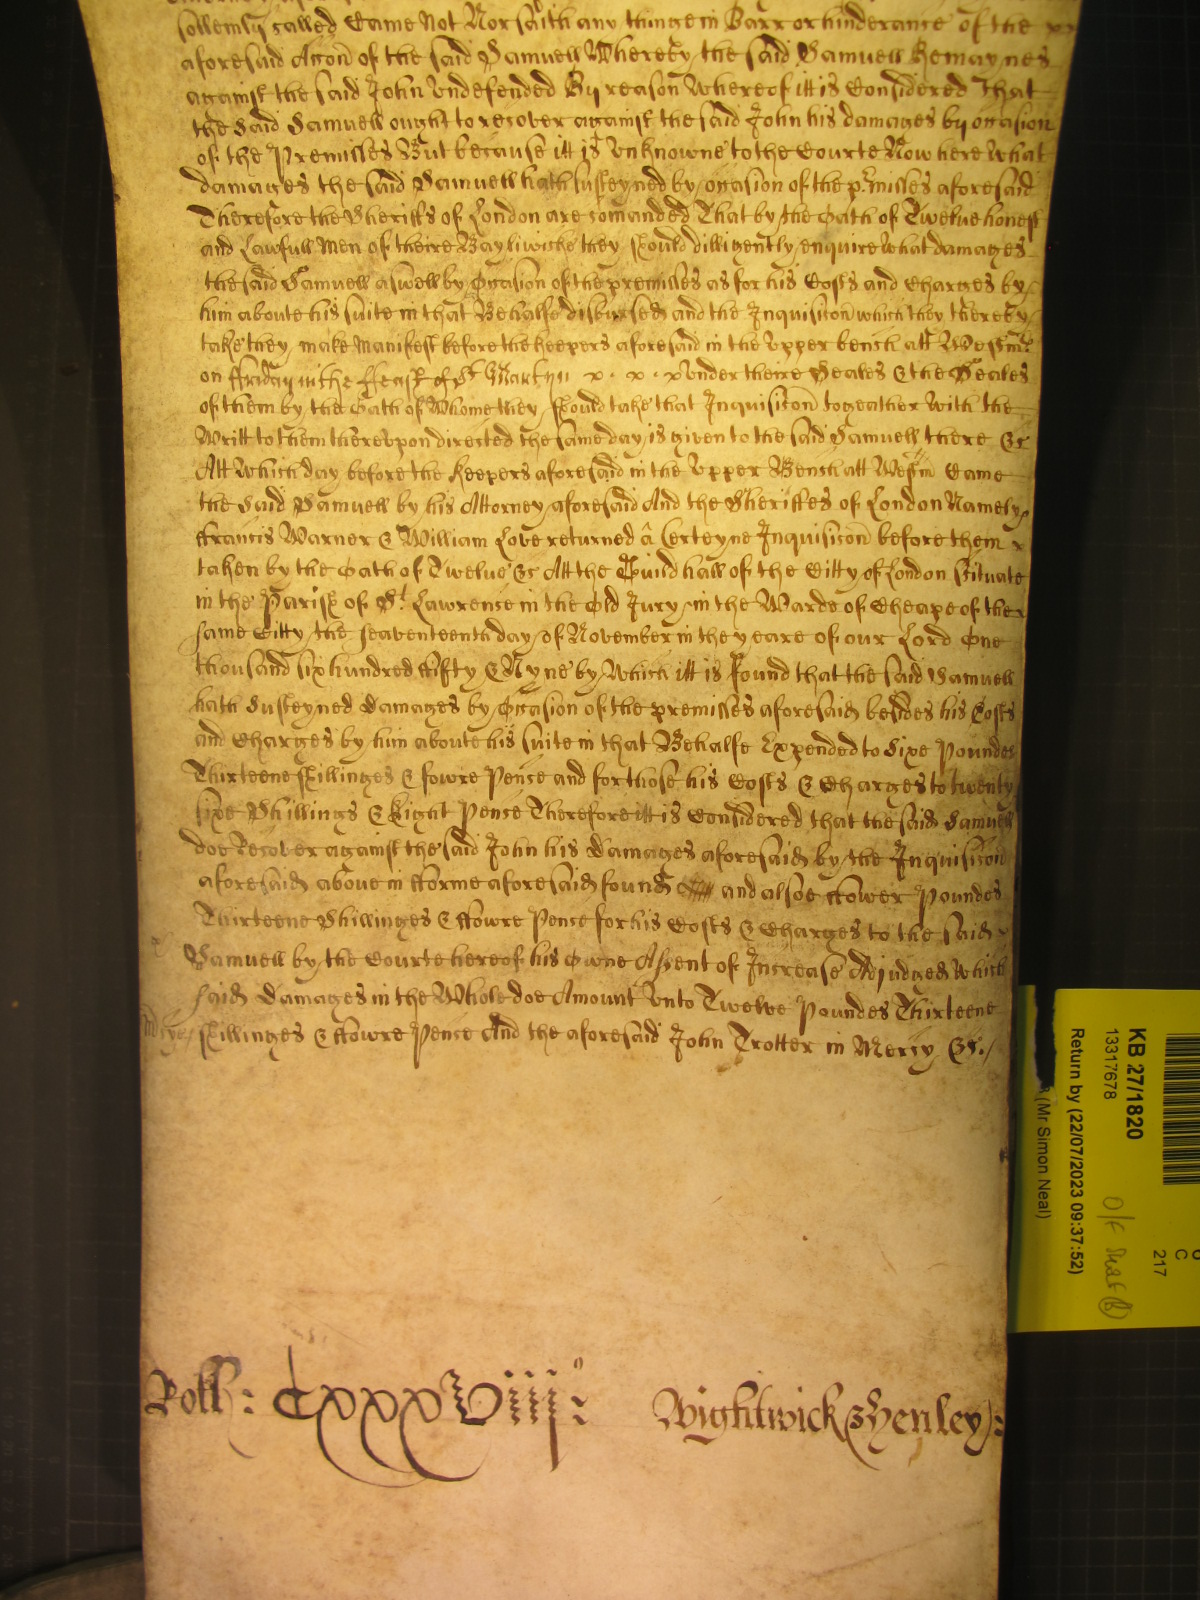 sollemly called Came Not Nor saith any thinge in Barr or hinderance of the
aforesaid Accon of the said Samuell Whereby the said Samuell Remaynes
against the said John Undefended By reason Whereof itt is Considered That
the said Samuell ought to recover against the said John his damages by occasion
of the Premisses But because itt is Unknowne to the Courte Now here What
damages the said Samuell hath susteyned by occasion of the p.misses aforesaid
Therefore the Sheriffs of London are comanded That by the Oath of Twelve honest
and Lawfull Men of theire Bayliwicke they should dilligently enquire What damages
the said Samuell aswell by Occasion of the premisses as for his Costs and Charges by
him aboute his suite in that Behalfe disbursed and the Inquisicon which they thereby
take they make Manifest before the Keepers aforesaid in the Upper bench att Westmr
on ffriday in the ffeast of St Martyn x . x . x Under theire Seales & the Seales
of them by the Oath of Whome they should take that Inquisicon togeather With the
Writt to them thereupon directed the same day is given to the said Samuell there &c
Att Which day before the Keepers aforesaid in the Upper Bench att Westm Came
the Said Samuell by his Attorney aforesaid And the Sheriffes of London Namely
ffrancis Warner & William Love returned a Certeyne Inquisicon before them
taken by the Oath of Twelve &c Att the Guildhall of the Citty of London Scituate
in the Parish of St Lawrence in the Old Jury in the Warde of Cheape of the
same Citty the seaventeenth day of November in the yeare of our Lord One
thousand six hundred ffifty & Nyne by Which itt is found that the said Samuell
hath Susteyned Damages by Occasion of the premisses aforesaid besides his Costs
and Charges by him aboute his suite in that Behalfe Expended to Sixe Poundes
Thirteene shillinges & fowre Pence and for those his Costs & Charges to twenty
sixe Shillings & Eight Pence Therefore itt is Considered that the said Samuell
doe Recover against the said John his Damages aforesaid by the Inquisicon
aforesaid above in fforme aforesaid found and alsoe ffower Poundes
Thirteene Shillinges & ffowre Pence for his Costs & Charges to the said
Samuell by the Courte hereof his Owne Assent of Increase Adjudged Which
said Damages in the Whole doe Amount Unto Twelve Poundes Thirteene
shillinges & ffowre Pence And the aforesaid John Trotter in Mercy &c.
Roll: CxxxViijo: Wightwick & Henley:
KB 27/1820
13317678
Return by (22/07/2023 09:37:52)
(Mr Simon Neal)
C
217